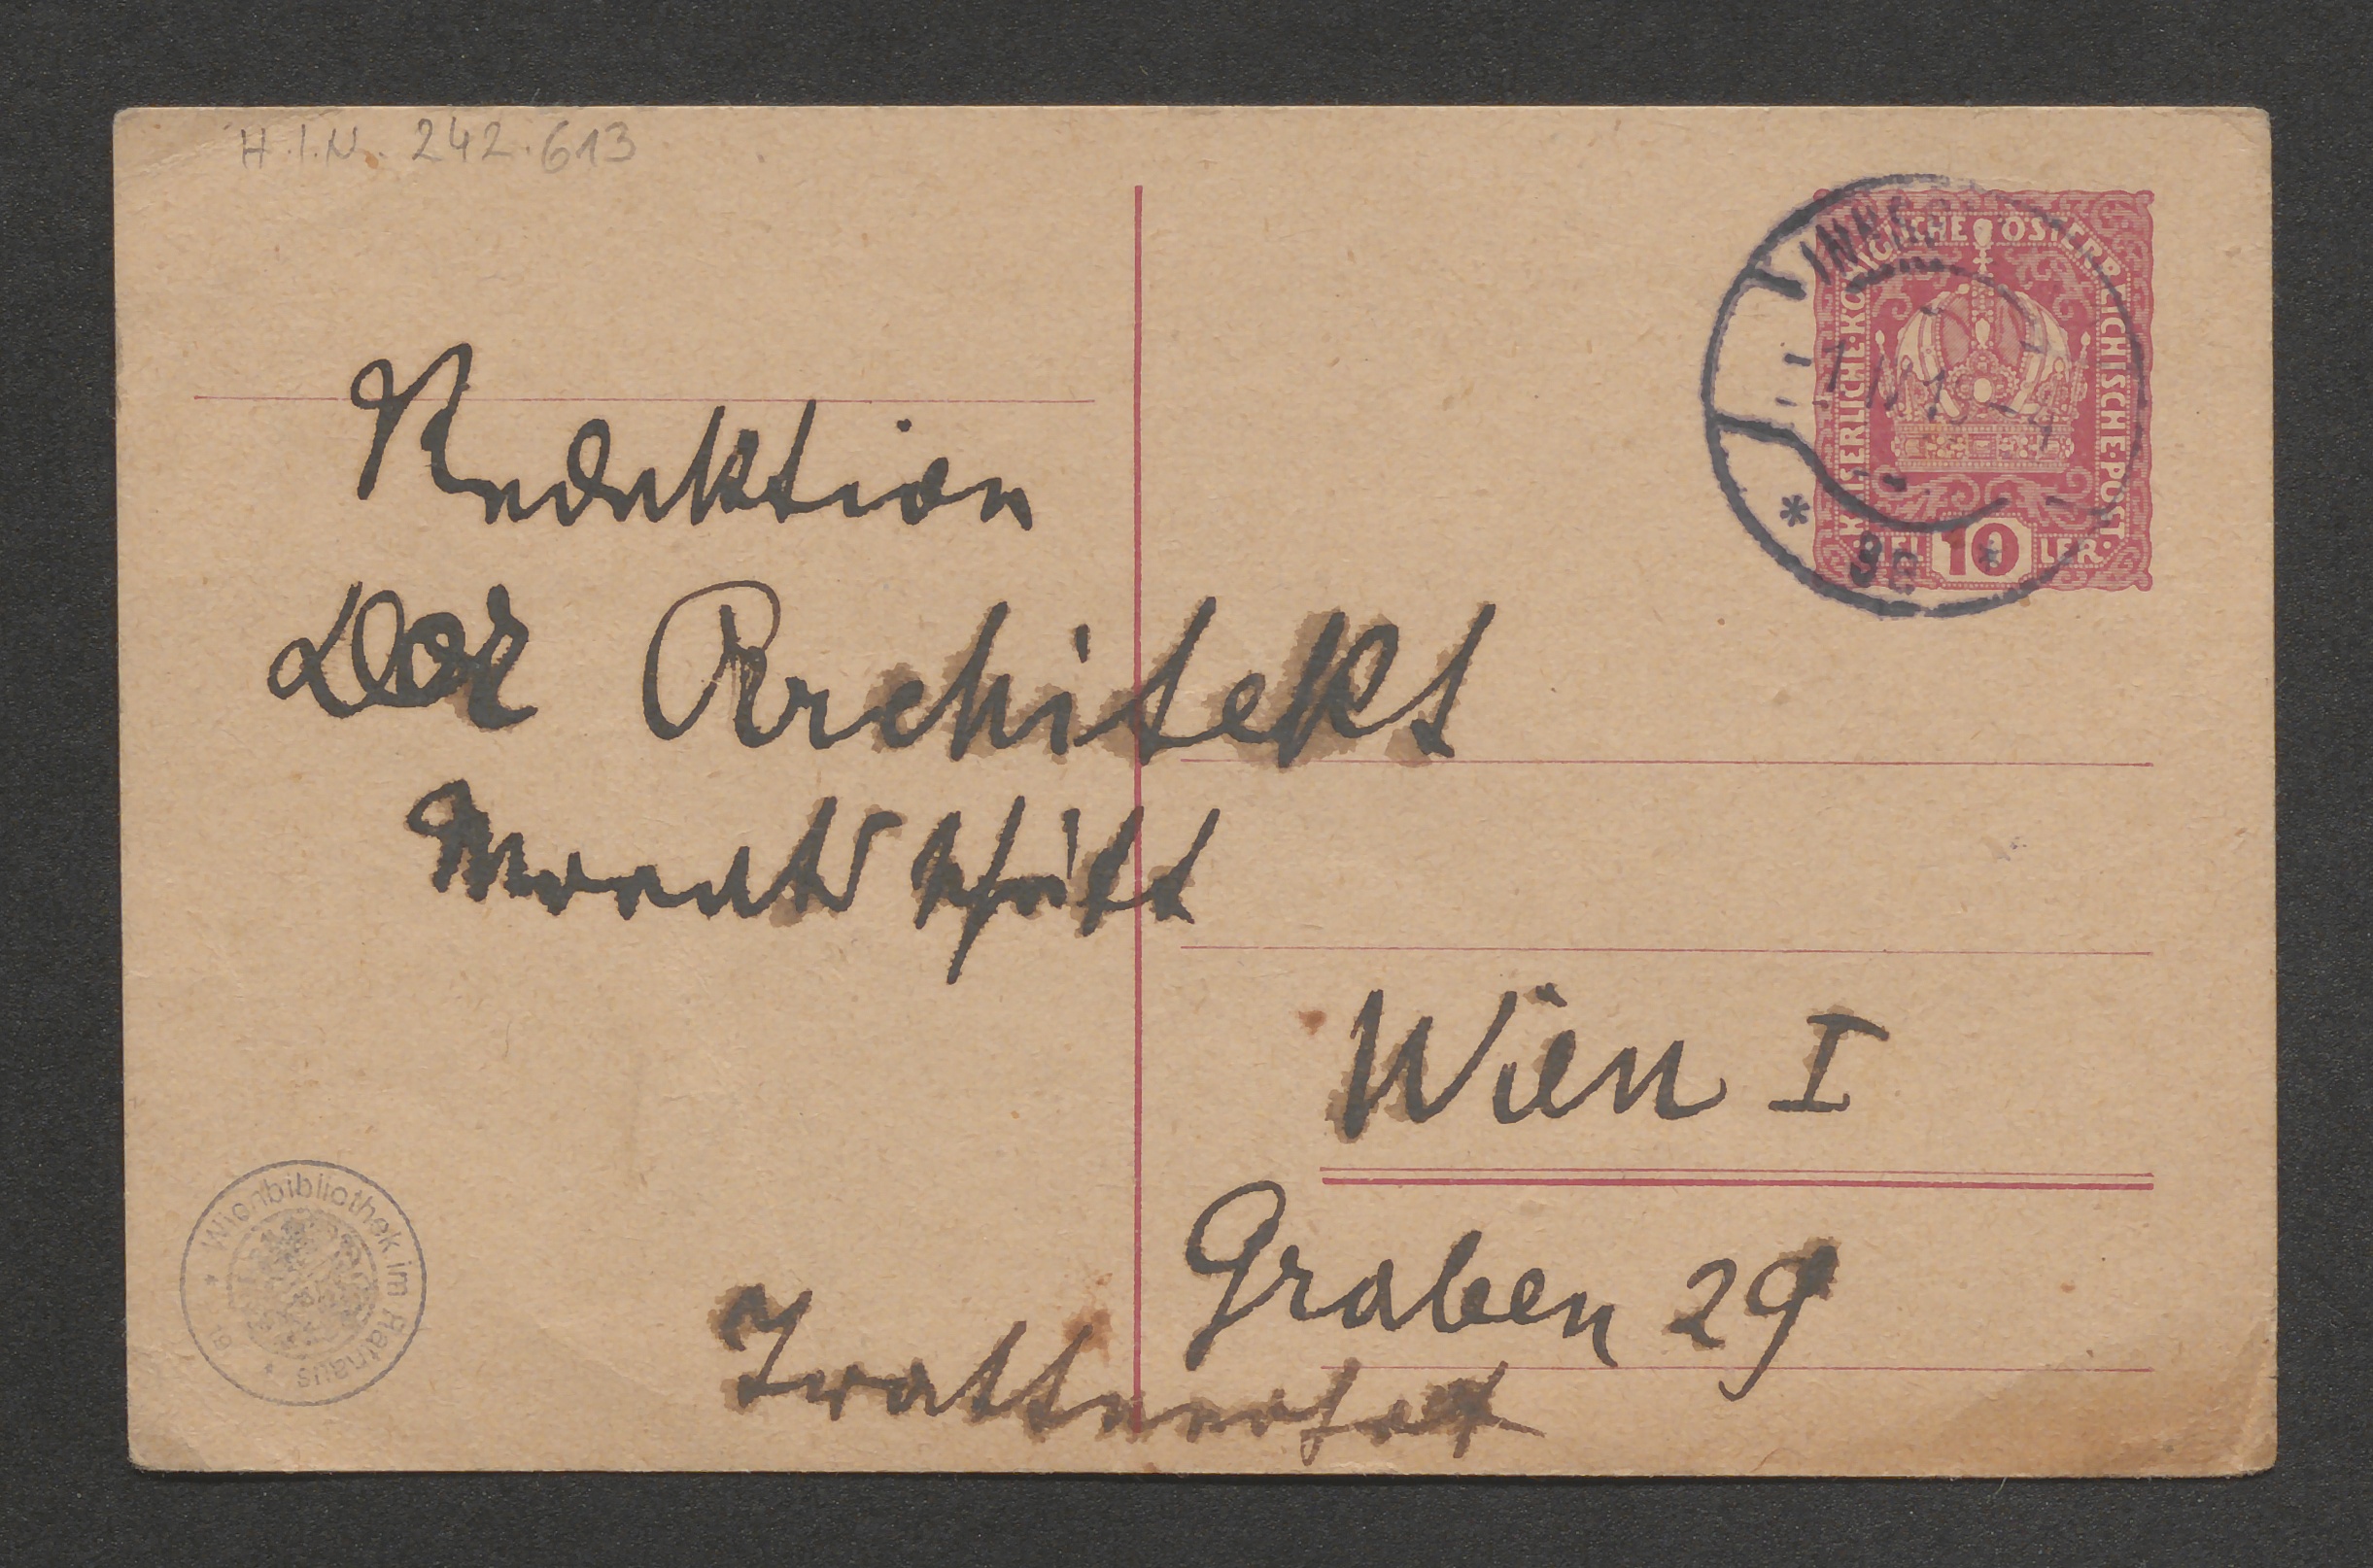 H.I.N. 242.613
KAISERLICHE·KÖNIGLICHE ÖSTERREICHISCHE·POST·
HELLER
10
*
9c
*
Redaktion
Der Architekt
Wien I
Graben 29
Wienbibliothek im Rathaus